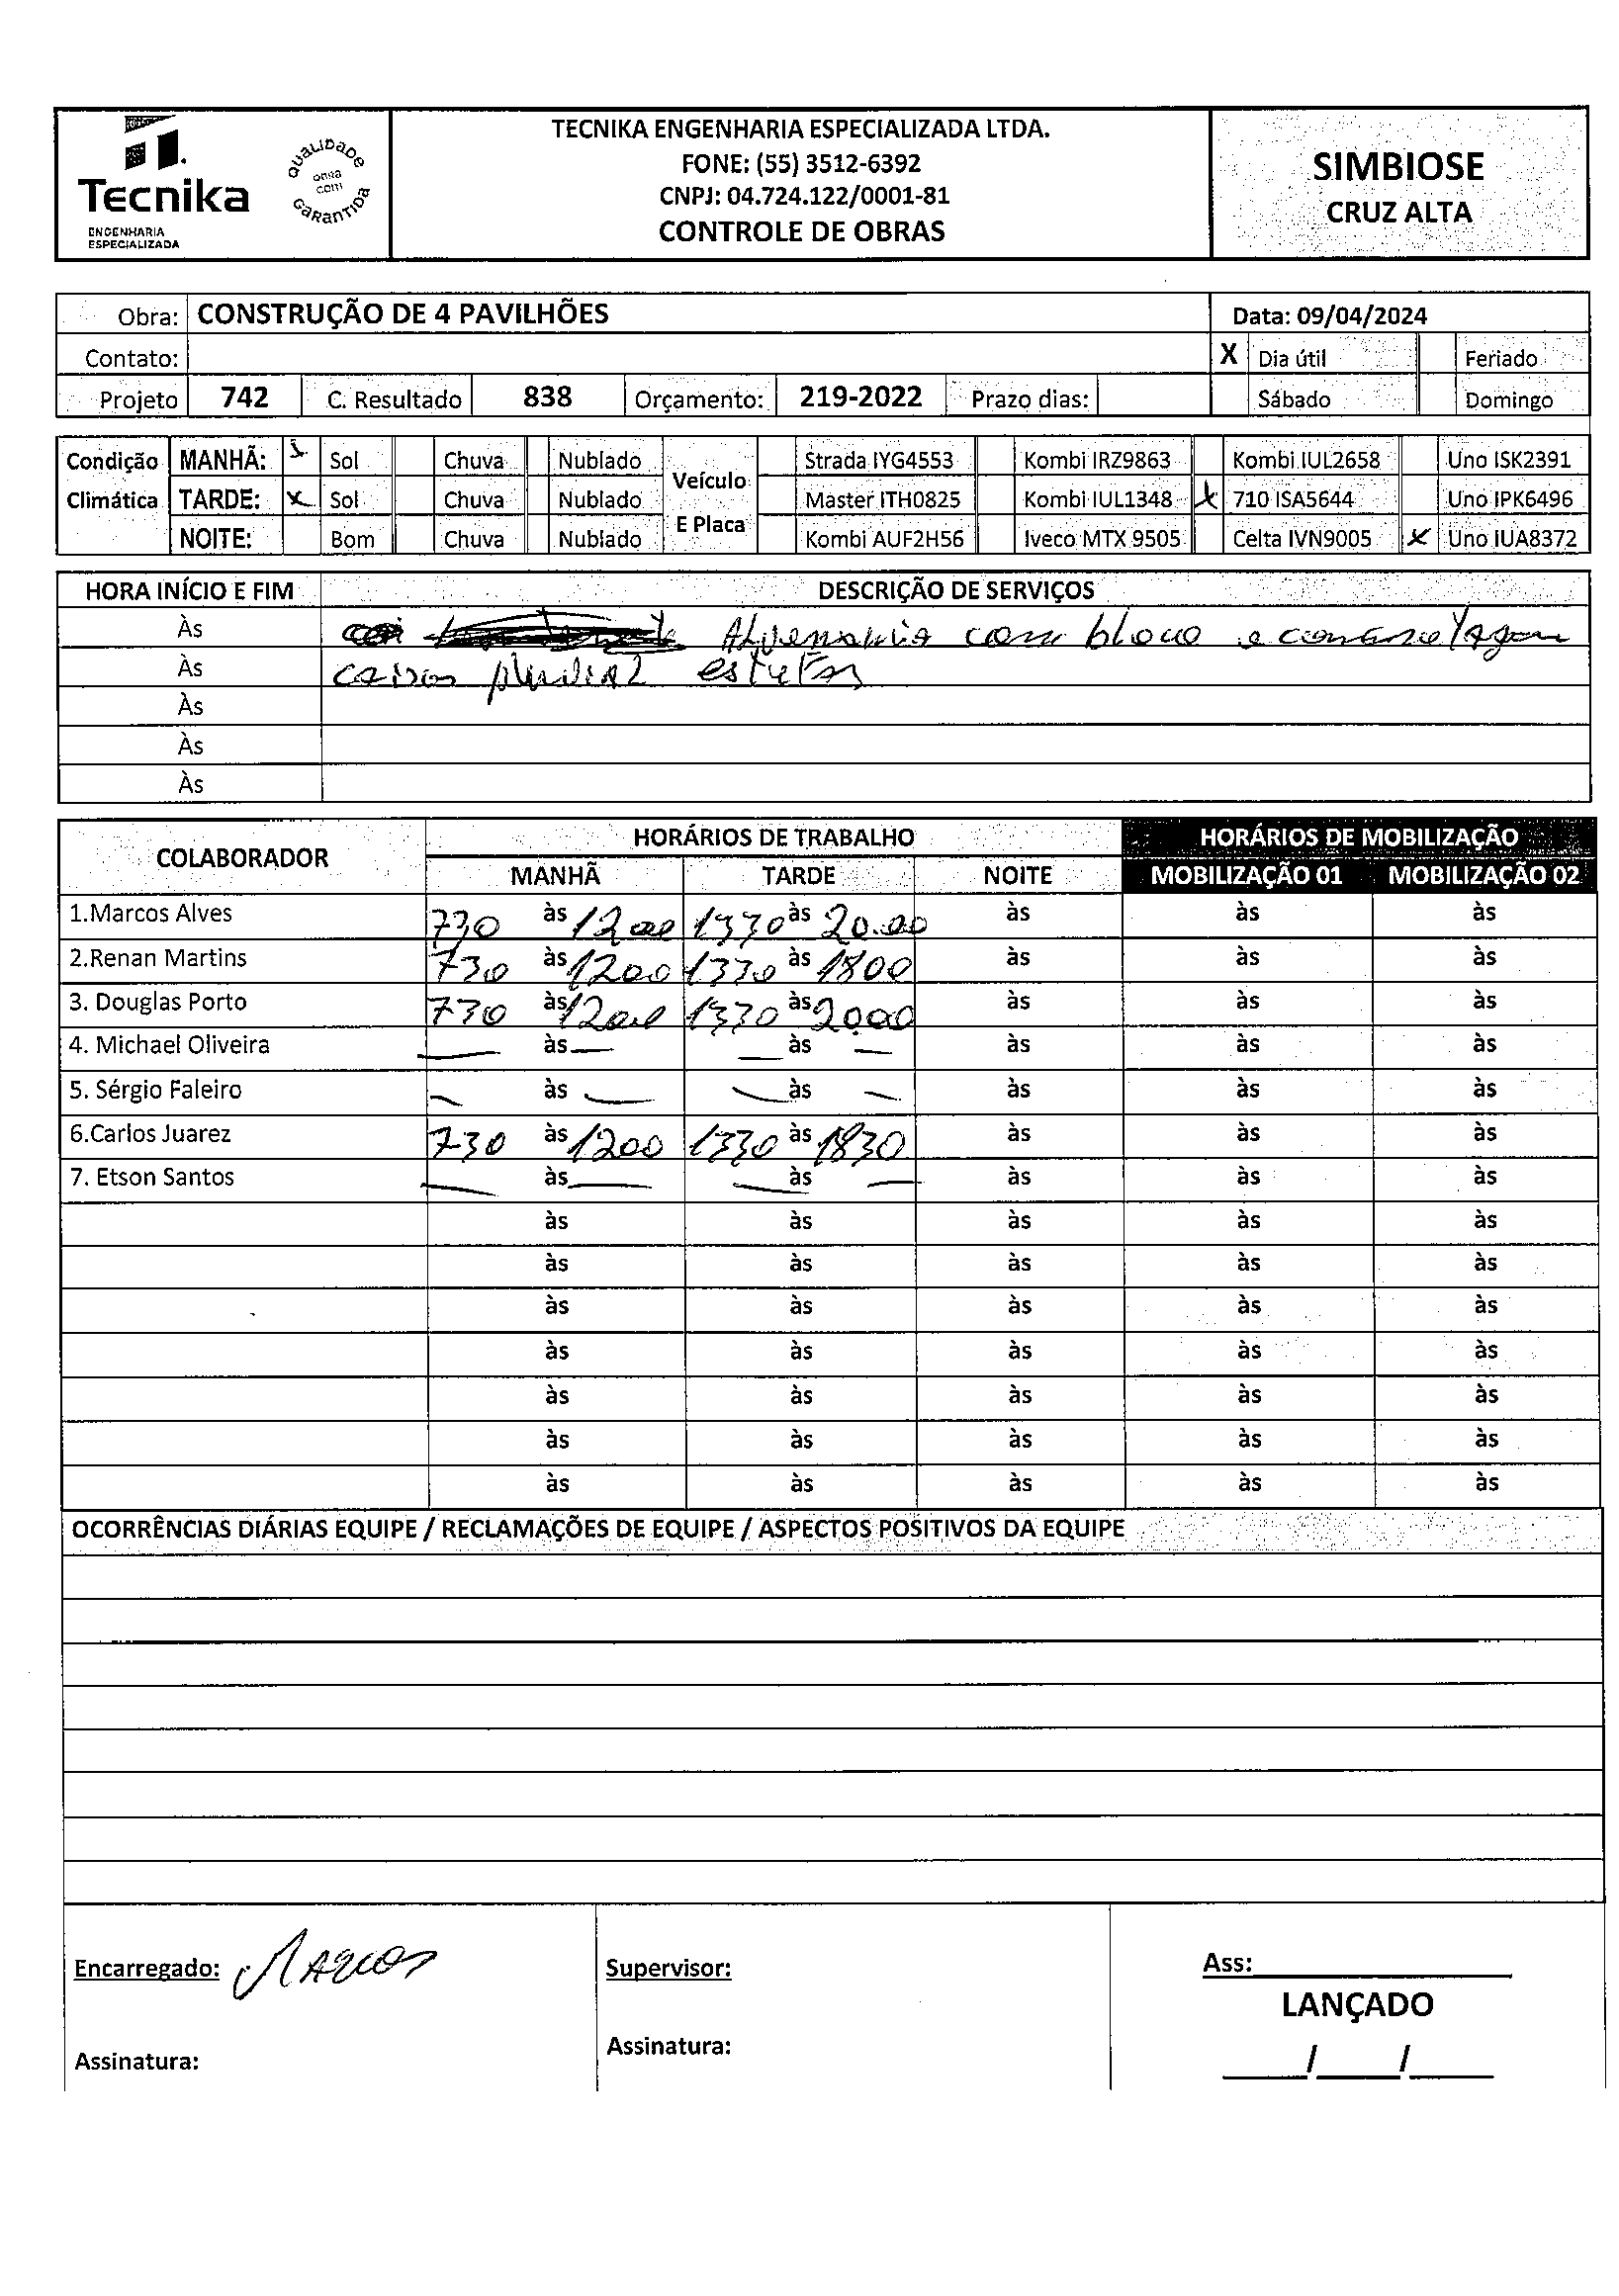 Tecnika
ENGENHARIA
ESPECIALIZADA
QUALIDADE
obra
com
GARANTIDA
TECNIKA ENGENHARIA ESPECIALIZADA LTDA.
FONE: (55) 3512-6392
CNPJ: 04.724.122/0001-81
CONTROLE DE OBRAS
SIMBIOSE
CRUZ ALTA
Obra: CONSTRUÇÃO DE 4 PAVILHÕES Data: 09/04/2024
Contato: X Dia útil Feriado
Projeto 742 C. Resultado 838 Orçamento: 219-2022 Prazo dias: Sábado Domingo
Condição MANHÃ: x Sol Chuva Nublado Veículo Strada IYG4553 Kombi IRZ9863 Kombi IUL2658 Uno ISK2391
Climática TARDE: x Sol Chuva Nublado Master ITH0825 Kombi IUL1348 x 710 ISA5644 Uno IPK6496
NOITE: Bom Chuva Nublado E Placa Kombi AUF2H56 Iveco MTX 9505 Celta IVN9005 x Uno IUA8372
HORA INÍCIO E FIM DESCRIÇÃO DE SERVIÇOS
Às Alvenaria com bloco e concretagem
Às caixas pluvial
Às
Às
Às
COLABORADOR HORÁRIOS DE TRABALHO HORÁRIOS DE MOBILIZAÇÃO
MANHÃ TARDE NOITE MOBILIZAÇÃO 01 MOBILIZAÇÃO 02
1.Marcos Alves 730 às 1200 1330 às 20.00 às às às
2.Renan Martins 730 às 1200 1330 às 1800 às às às
3. Douglas Porto 730 às 1200 1330 às 2000 às às às
4. Michael Oliveira — às — — às — às às às
5. Sérgio Faleiro — às — — às — às às às
6.Carlos Juarez 730 às 1200 1330 às 1830 às às às
7. Etson Santos — às — — às — às às às
às às às às às
às às às às às
às às às às às
às às às às às
às às às às às
às às às às às
às às às às às
OCORRÊNCIAS DIÁRIAS EQUIPE / RECLAMAÇÕES DE EQUIPE / ASPECTOS POSITIVOS DA EQUIPE
Encarregado: Marcos Supervisor: Ass:
LANÇADO
Assinatura: Assinatura: / /